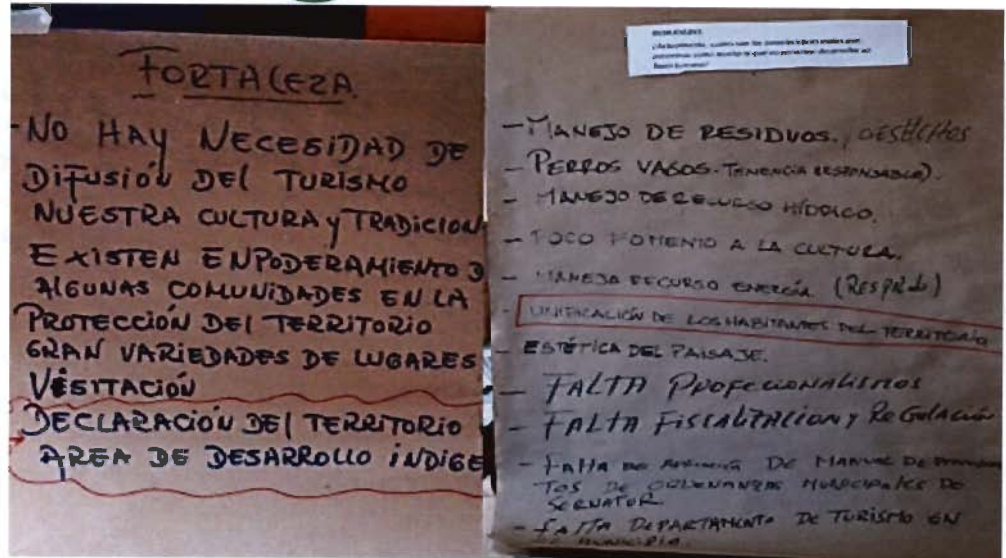 FORTALEZA
-NO HAY NECESIDAD DE
DIFUSIÓN DEL TURISMO
NUESTRA CULTURA Y TRADICION
EXISTEN ENPODERAMIENTO D
ALGUNAS COMUNIDADES EN LA
PROTECCIÓN DEL TERRITORIO
GRAN VARIEDADES DE LUGARES
VISITACIÓN
DECLARACIÓN DEL TERRITORIO
AREA DE DESARROLLO INDIGE
- MANEJO DE RESIDUOS., DESECHOS
- PERROS VAGOS. TENENCIA RESPONSABLE).
- MANEJO DE RECURSO HÍDRICO.
- POCO FOMENTO A LA CULTURA.
- MANEJA RECURSO ENERGÍA. (Respaldo)
- UNIFICACIÓN DE LOS HABITANTES DEL TERRITORIO
- ESTÉTICA DEL PAISAJE.
- FALTA Profecionalismos
- FALTA FISCALIZACION y ReGulación
- FALTA DE DE MANUAL DE
TOS DE ORDENANZAS MUNICIPALES DE
SERNATUR.
- FALTA DEPARTAMENTO DE TURISMO EN
MUNICIPIO.